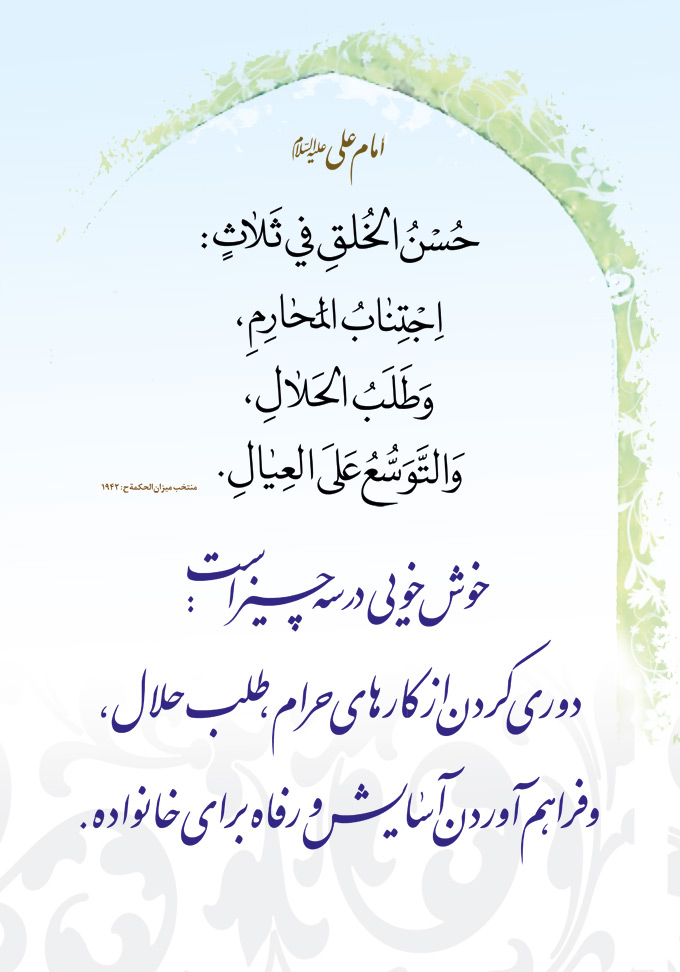 امام علی علیه‌السلام
حُسْنُ الخُلقِ في ثَلاثٍ:
اِجْتِنابُ المَحارِمِ،
وَطَلَبُ الحَلالِ،
وَالتَّوَسُّعُ عَلَى العِيالِ.
منتخب میزان الحکمة ح: ۱۹۴۲
خوش خویی در سه چیز است:
دوری کردن از کارهای حرام، طلب حلال،
و فراهم آوردن آسایش و رفاه برای خانواده.